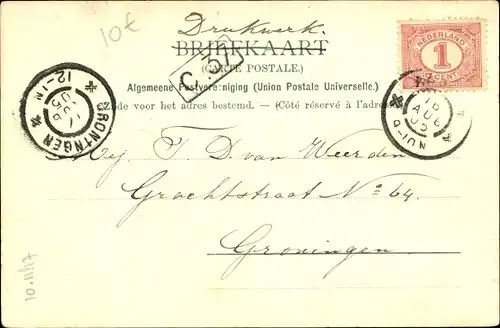 10€
Drukwerk.
BRIEFKAART
(CARTE POSTALE.)
Algemeene Postvereeniging (Union Postale Universelle.)
Zijde voor het adres bestemd. — (Côté réservé à l'adresse.)
NEDERLAND
1
CENT
GRONINGEN
12-1N
Mej. T. D. van Weerden
Grachtstraat No 64.
Groningen.
10.11/17